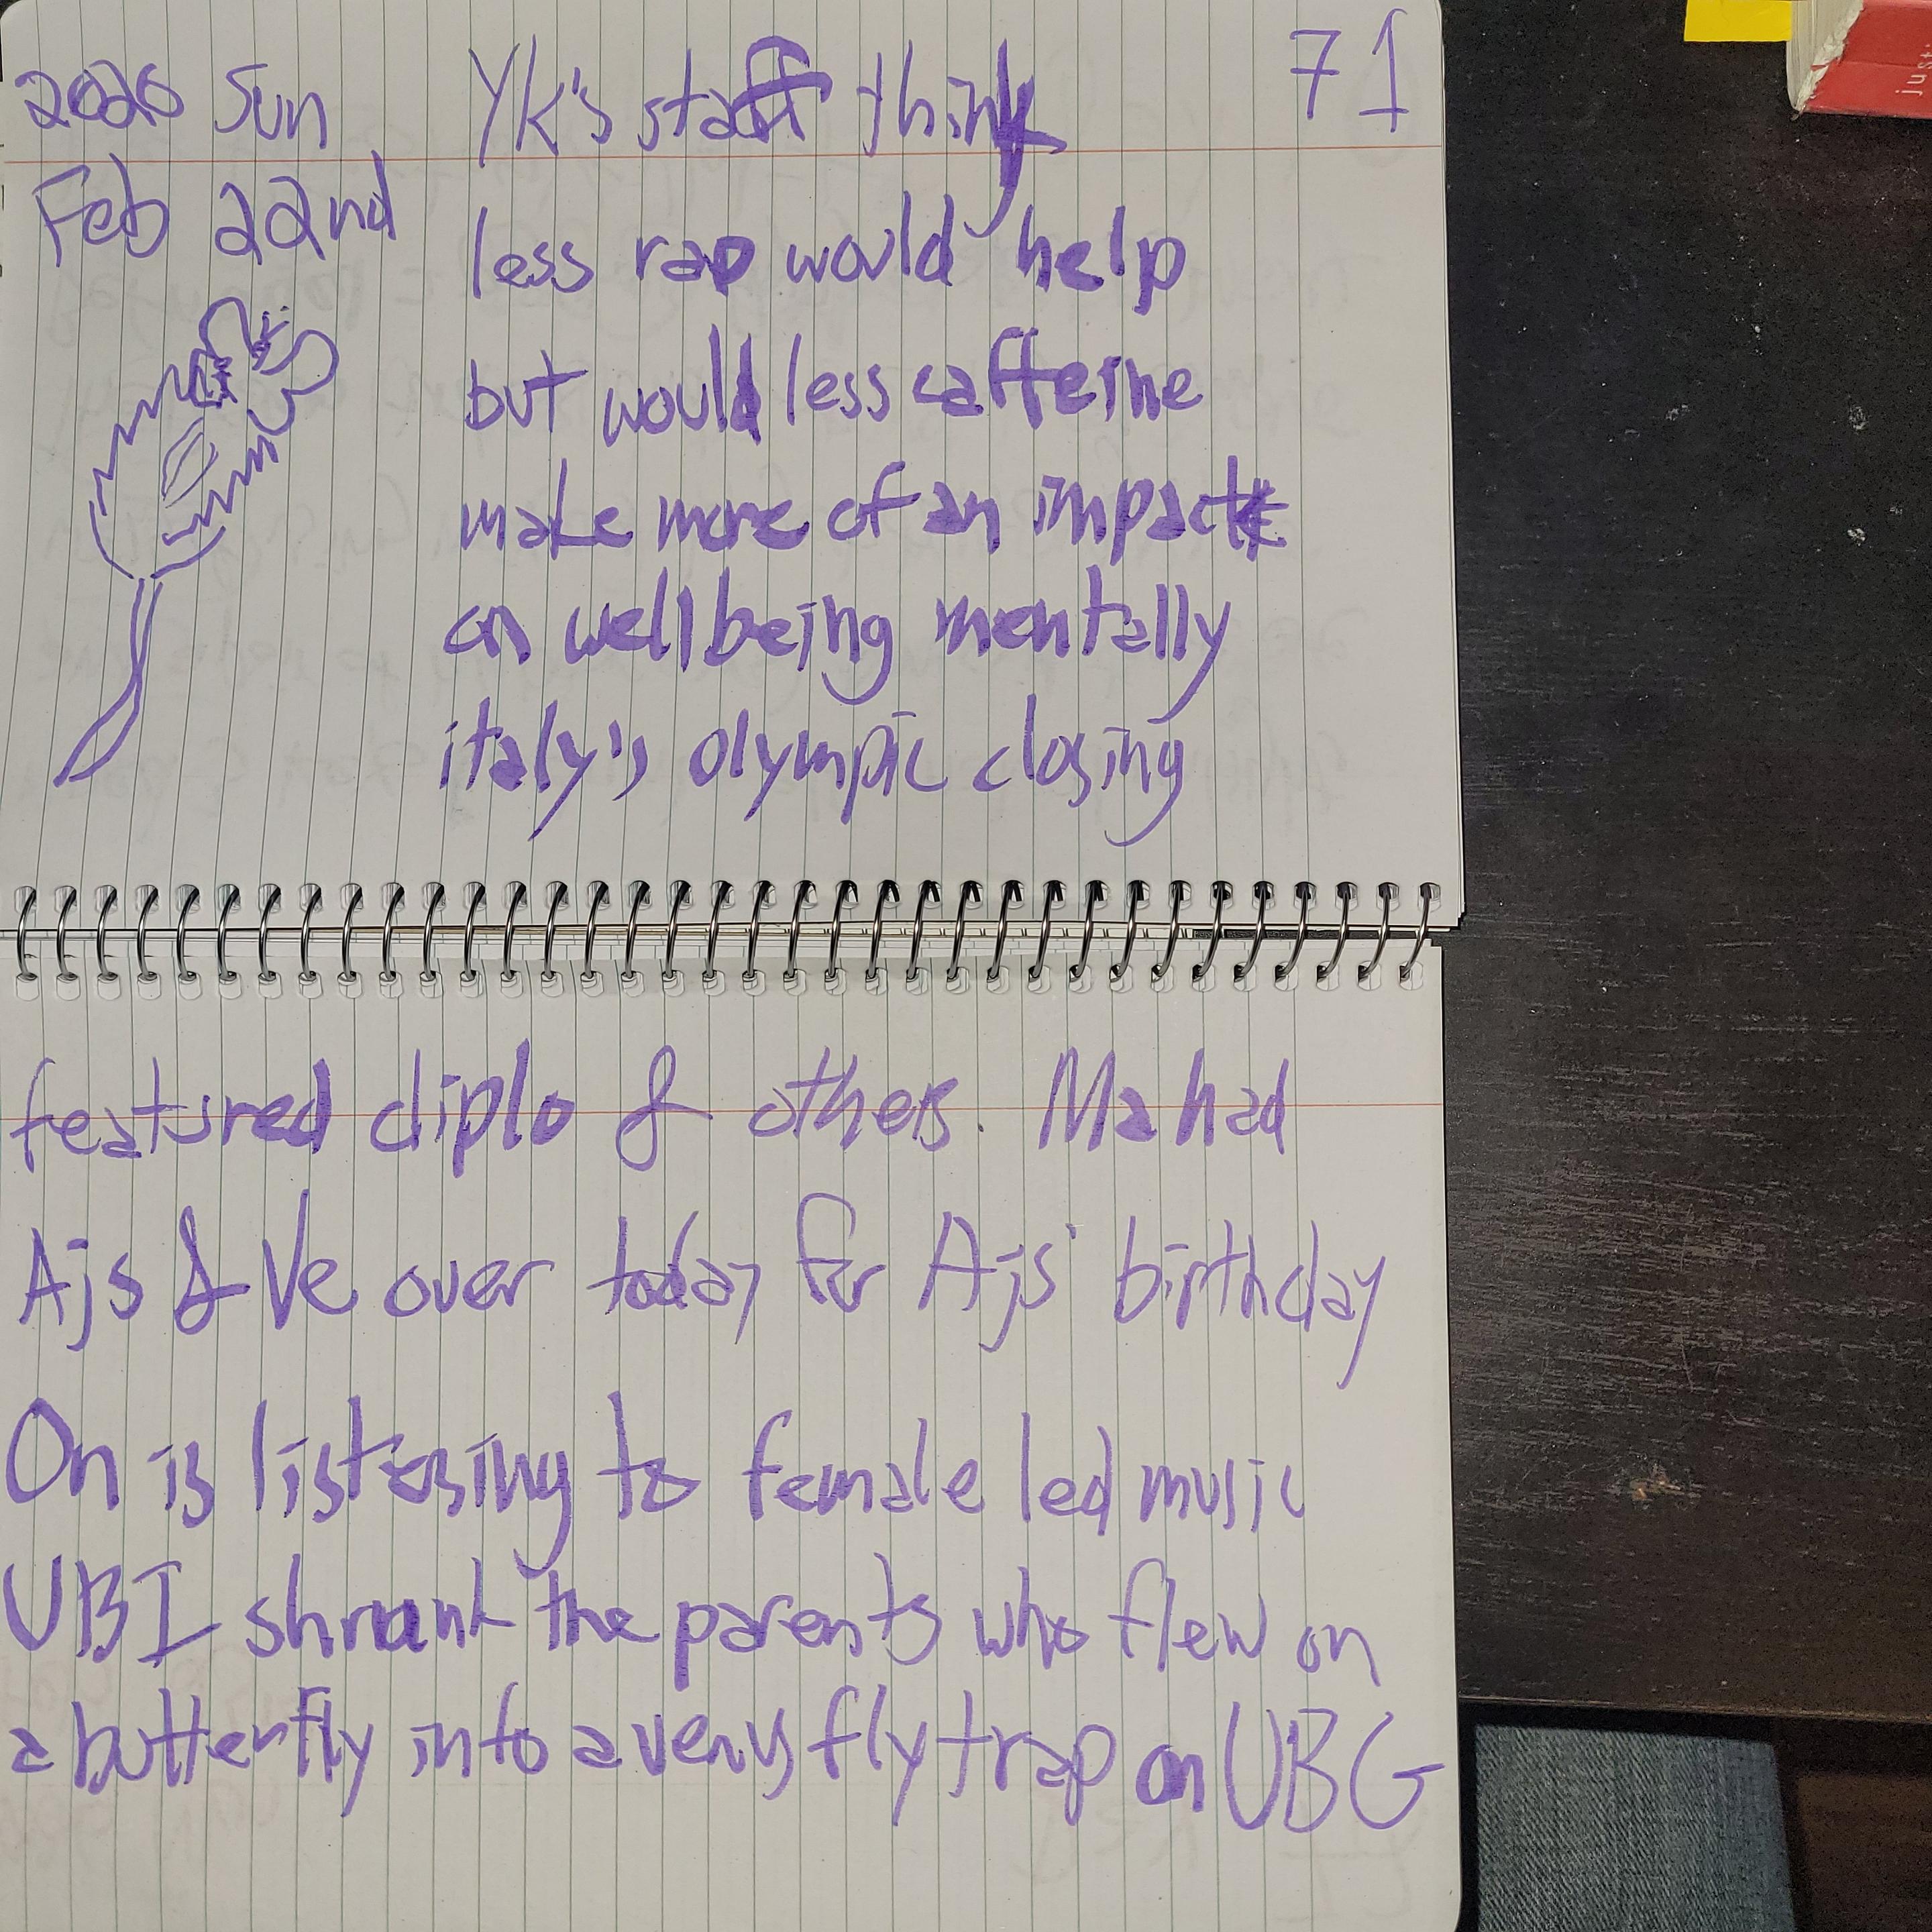 2026 Sun
Feb 22nd
71
Yk's staff think
less rap would help
but would less caffeine
make more of an impact
on wellbeing mentally
italy's olympic closing
featured diplo & others. Ma had
Ajs & Ve over today for Ajs' birthday
On is listening to female led music
UBI shrunk the parents who flew on
a butterfly into a venus fly trap on UBG
just